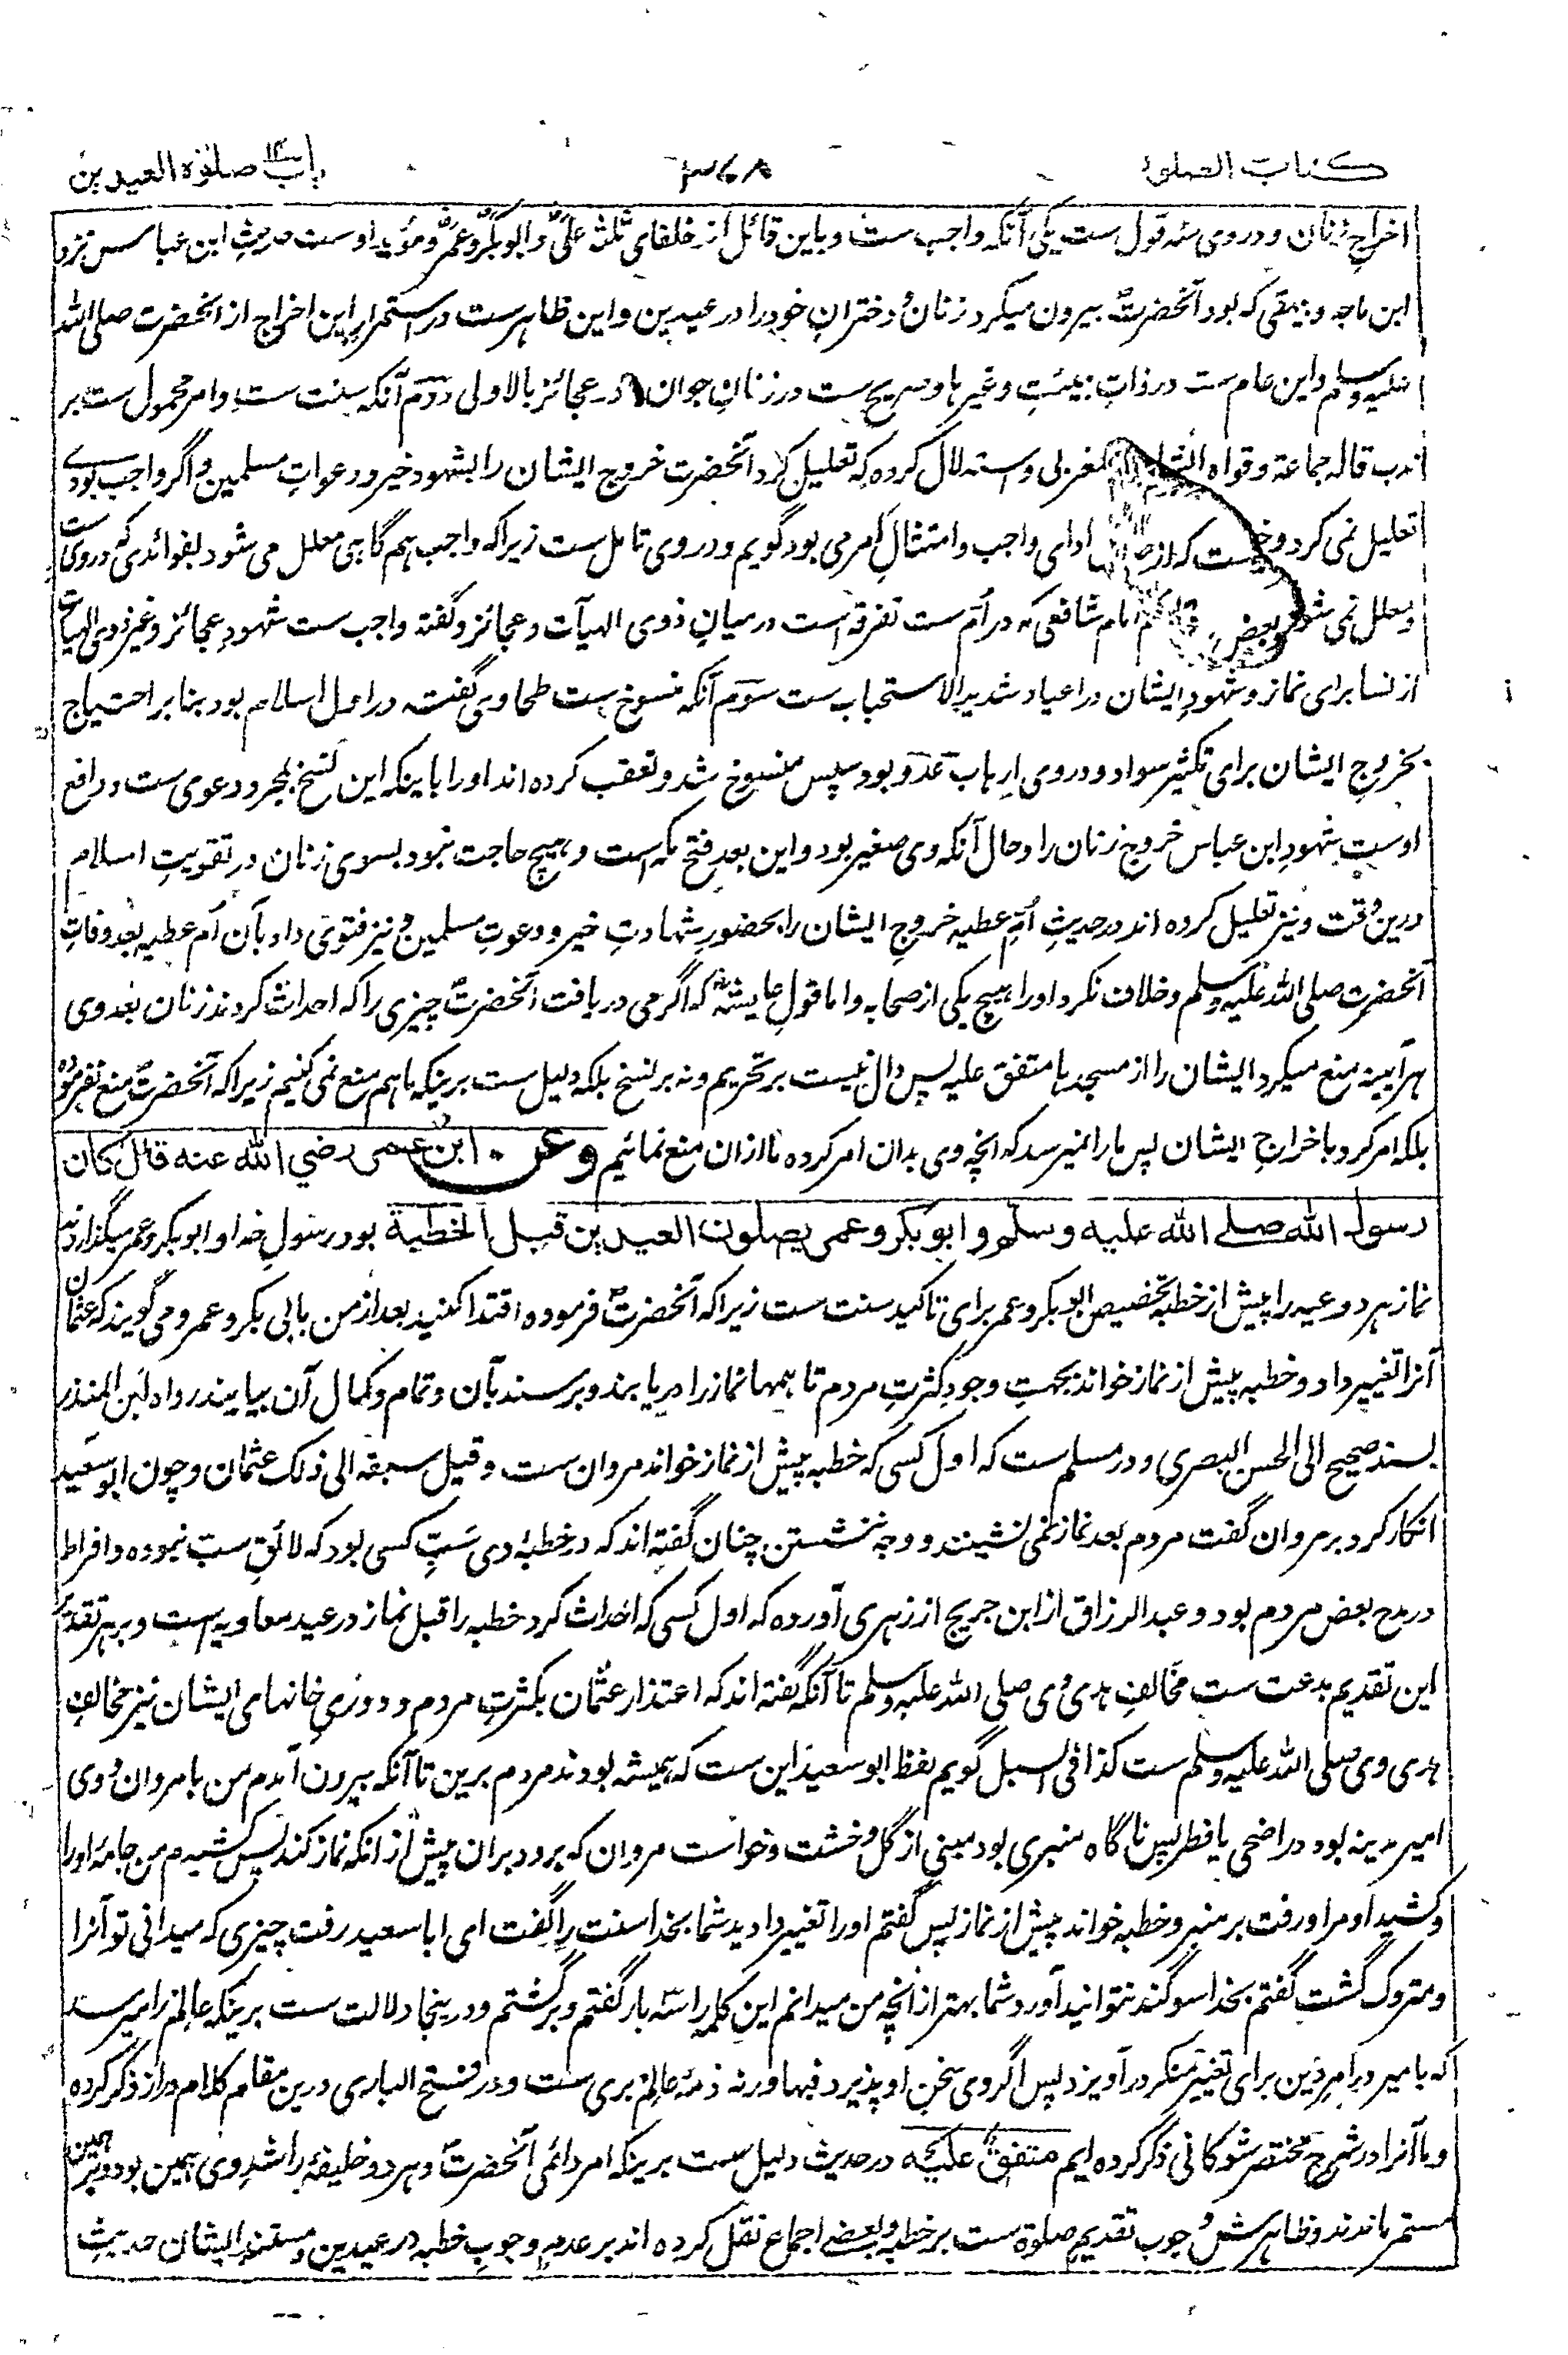 کتاب الصلوٰة ۳۶۸ باب صلوٰة العیدین
اخراج زنان و دروی سه قول ست یکی آنکه واجب ست و باین قائل از خلفای ثلثه علی و ابوبکر و عمر و مؤید اوست حدیث ابن عباس نزد
ابن ماجه و بیهقی که بود آنحضرت بیرون میکرد زنان و دختران خود را در عیدین و این ظاهرست در استمرار این اخراج از آنحضرت صلی الله
علیه وسلم و این عام ست در ذات هیئت و غیرها و صریح ست در زنان جوان و در عجائز بالاولی دوم آنکه سنت ست و امر محمول ست بر
ندب قاله جماعة و قواه الشارح المغربی و استدلال کرده که تعلیل کرد آنحضرت خروج ایشان را بشهود خیر و دعوات مسلمین و اگر واجب بودے
تعلیل نمی کرد و ادای واجب و امتثال امر می بود گویم و دروی تامل ست زیراکه واجب هم گاهی معلل می شود بفوائدی که دروی ست
و معلل نمی شود امام شافعی که در اُم ست تفرقه است درمیان ذوی الهیآت و عجائز و گفته واجب ست شهود عجائز و غیر ذوی الهیات
از نسا برای نماز و شهود ایشان در اعیاد شدید الاستحباب ست سوم آنکه منسوخ ست طحاوی گفته در اول اسلام بود بنابر احتیاج
بخروج ایشان برای تکثیر سواد و دروی ارهاب عدو بود سپس منسوخ شد و تعقب کرده اند او را باینکه این نسخ بمجرد دعوی ست و دافع
اوست شهود ابن عباس خروج زنان را و حال آنکه وی صغیر بود و این بعد فتح مکه است و هیچ حاجت نبود بسوی زنان در تقویت اسلام
درین وقت و نیز تعلیل کرده اند در حدیث اُم عطیه خروج ایشان را بحضور شهادت خیر و دعوت مسلمین و نیز فتوی داد بآن اُم عطیه بعد وفات
آنحضرت صلی الله علیه وسلم و خلافت نکرد او را هیچ یکی از صحابه و اما قول عایشه که اگر می دریافت آنحضرت چیزی را که احداث کردند زنان بعد وی
هرآیینه منع میکرد ایشان را از مسجدها متفق علیه پس دال نیست بر تحریم و نه بر نسخ بلکه دلیل ست برینکه ما هم منع نمی کنیم زیراکه آنحضرت منع نفرموده
بلکه امر کرد باخراج ایشان پس ما را نمیرسد که آنچه وی بدان امر کرده ما ازان منع نمائیم وعن ابن عمر رضي الله عنه قال کان
رسول الله صلے الله علیه وسلم وابوبکر وعمر یصلون العیدین قبل الخطبة بود رسول خدا و ابوبکر و عمر میگذاردند
نماز هر دو عید را پیش از خطبه تخصیص ابوبکر و عمر برای تاکید سنت ست زیراکه آنحضرت فرموده اقتدا کنید بعد از من بابی بکر و عمر و می گویند که عثمان
آنرا تغییر داد و خطبه پیش از نماز خواند بجهت وجود کثرت مردم تا همها نماز را دریابند و برسند بآن و تمام و کمال آن بیایند رواه ابن المنذر
بسند صحیح الی الحسن البصری و در مسلم ست که اول کسی که خطبه پیش از نماز خواند مروان ست و قیل سبقه الی ذلک عثمان و چون ابوسعید
انکار کرد بر مروان گفت مردم بعد نماز نمی نشینند و وجه ننشستن چنان گفته اند که در خطبۀ وی سَبِّ کسی بود که لائق سب نبوده و افراط
در مدح بعض مردم بود و عبدالرزاق از ابن جریج از زهری آورده که اول کسی که احداث کرد خطبه را قبل نماز در عید معاویه است و بهر تقدیر
این تقدیم بدعت ست مخالف هدی وی صلی الله علیه وسلم تا آنکه گفته اند که اعتذار عثمان بکثرت مردم و دوری خانهای ایشان نیز مخالف
هدی وی صلی الله علیه وسلم ست کذا فی السبل گویم لفظ ابوسعید این ست که همیشه بودند مردم برین تا آنکه بیرون آمدم من با مروان و وی
امیر مدینه بود در اضحی یا فطر پس ناگاه منبری بود مبنی از گل و خشت و خواست مروان که برود بران پیش از آنکه نماز کند پس کشیدم من جامۀ او را
و کشید او مرا و رفت بر منبر و خطبه خواند پیش از نماز پس گفتم او را تغییر دادید شما بخدا سنت را گفت ای اباسعید رفت چیزی که میدانی تو آنرا
و متروک گشت گفتم بخدا سوگند نتوانید آورد شما بهتر از آنچه من میدانم این کلمه را سه بار گفتم و برگشتم و درینجا دلالت ست برینکه عالم را میرسد
که با میر در امر دین برای تغییر منکر درآویزد پس اگر وی سخن او پذیرد فبها ورنه ذمۀ عالم بری ست و در فتح الباری درین مقام کلام دراز ذکر کرده
و ما آنرا در شرح مختصر شوکانی ذکر کرده ایم متفق علیه در حدیث دلیل ست برینکه امر دائمی آنحضرت و هر دو خلیفۀ راشد وی همین بود و بر همین
مستمر ماندند و ظاهرش وجوب تقدیم صلوة ست بر خطبه و بعضے اجماع نقل کرده اند بر عدم وجوب خطبه در عیدین و مستند ایشان حدیث